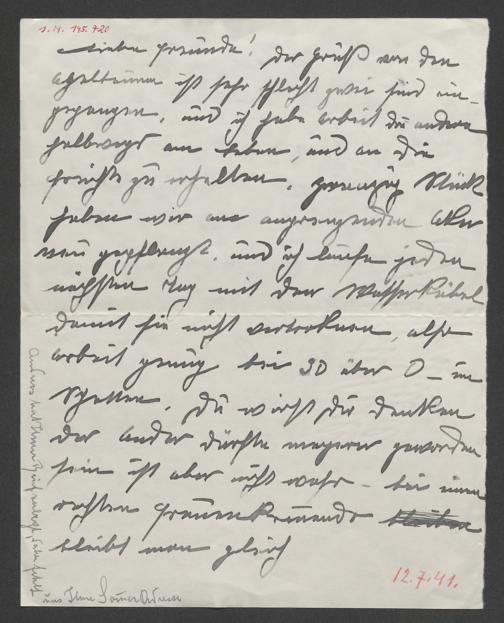 I.N. 145.720
Lieben Freunde! Der Gruß von den
Apfelbäumen ist sehr schlecht zwei sind ein-
gegangen, und ich habe arbeit die andern
halbwegs am Leben, und an die
früchte zu erhalten. zwanzig Stück
haben wir am angrenzenden Aker
neu gepflanzt, und ich laufe jeden
nächsten Tag mit dem Wasserkübel
damit sie nicht vertroknen, also
arbeit genug bei 30 über 0 – im
Schatten. Du wirst dir denken
der Ander dürfte magerer geworden
sein ist aber nicht wahr – bei einem
rechten Frauenkommando
bleibt man gleich
12.7.41.
uns Ihre